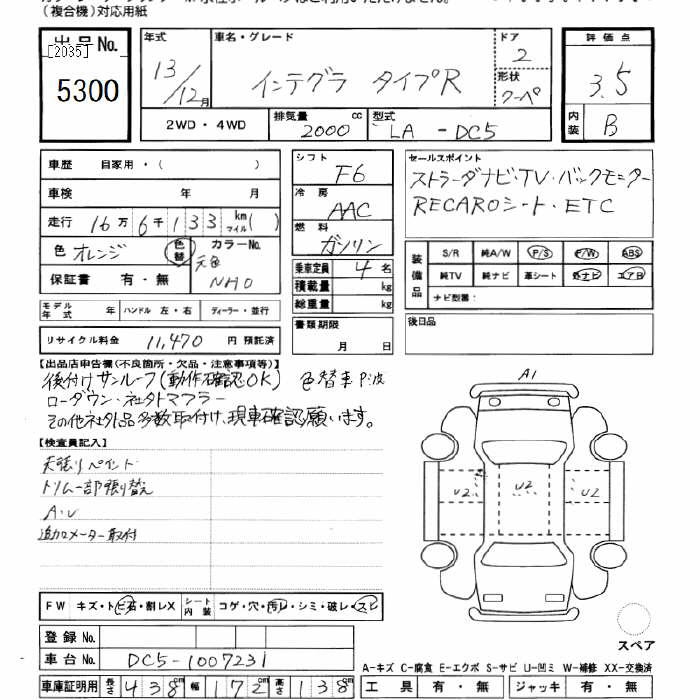 (複合機)対応用紙
出品No.
[2035]
5300
年式 車名・グレード ドア
13/12月 インテグラ タイプR 2
形状 クーペ
2WD・4WD 排気量 2000 cc 型式 LA - DC5
評価点
3.5
内装 B
車歴 自家用・( )
車検 年 月
走行 16万6千133 km マイル( )
色 オレンジ 色替 カラーNo.
元色 NH0
保証書 有・無
シフト F6
冷房 AAC
燃料 ガソリン
乗車定員 4 名
積載量 kg
総重量 kg
セールスポイント
ストラーダナビ・TV・バックモニター
RECAROシート・ETC
装備品 S/R 純A/W P/S P/W ABS
純TV 純ナビ 革シート 社ナビ エアB
ナビ型番:
モデル年式 年 ハンドル 左・右 ディーラー・並行
書類期限
月 日
後日品
リサイクル料金 11,470 円 預託済
【出品店申告欄(不良箇所・欠品・注意事項等)】
後付けサンルーフ(動作確認OK) 色替車
ローダウン・社外マフラー
その他社外品多数取付け、現車確認願います。
【検査員記入】
天張りペイント
トリム一部張り替え
A・U
追加メーター取付
A1
U2 U2 U2
FW キズ・トビ石・割レX シート内装 コゲ・穴・汚レ・シミ・破レ・スレ
登録No.
車台No. DC5-1007231
スペア
A-キズ C-腐食 E-エクボ S-サビ U-凹ミ W-補修 XX-交換済
車庫証明用 長さ 438cm 幅 172cm 高さ 138cm
工具 有・無 ジャッキ 有・無